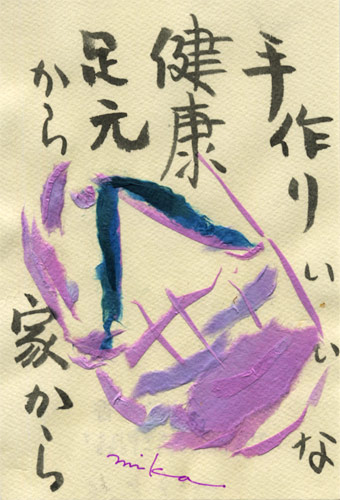 手作りいいな
健康
足元から
家から
mika